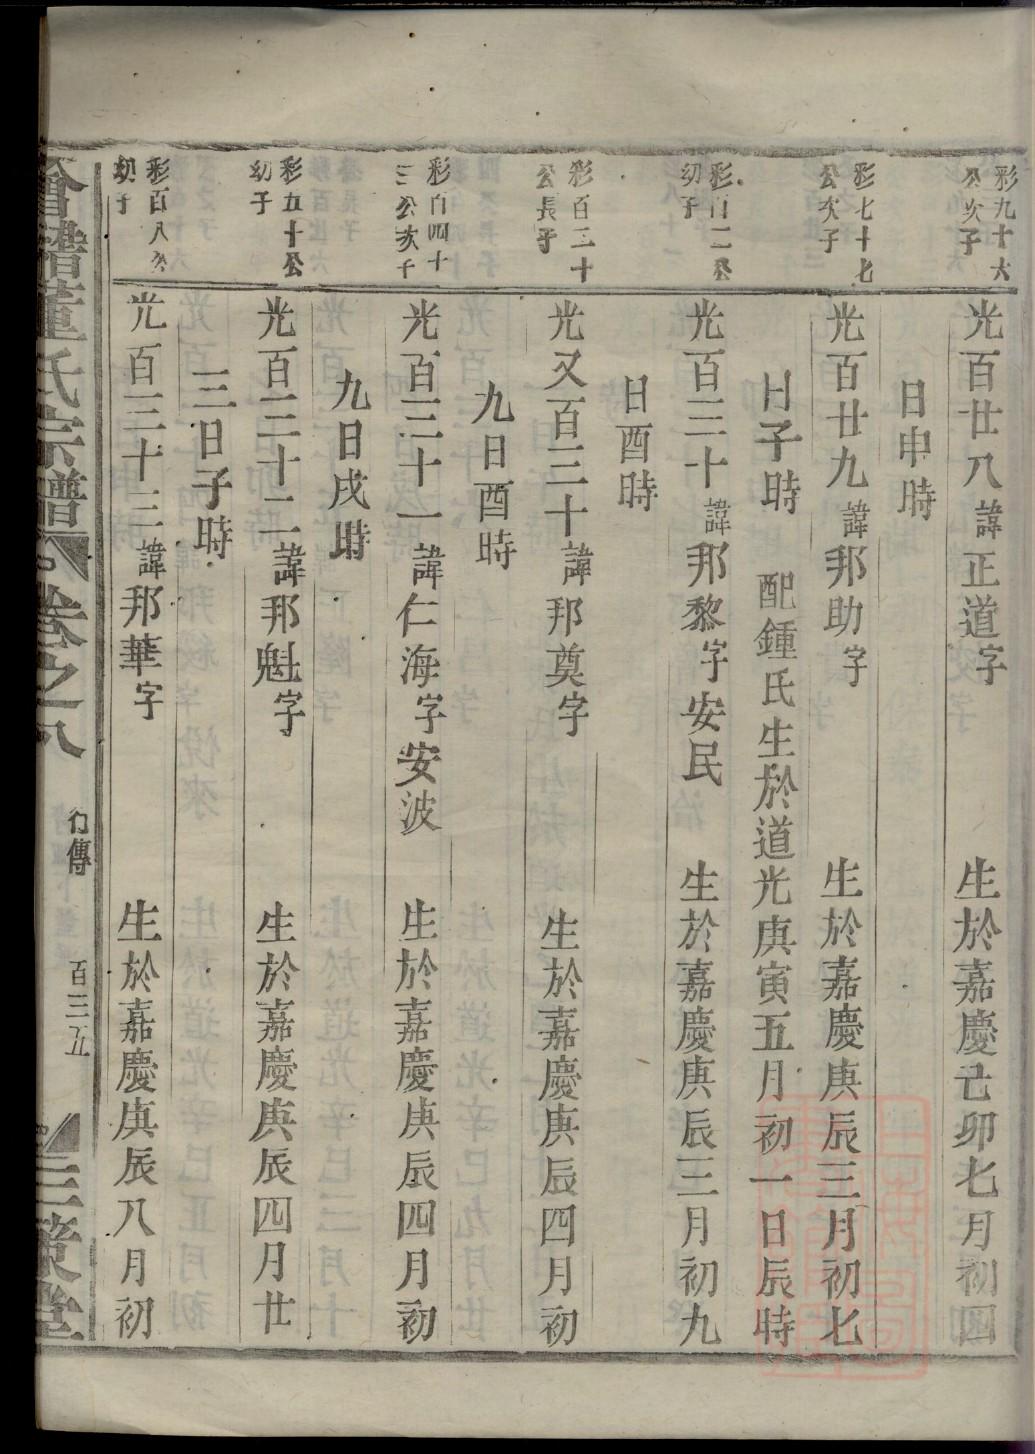 彩九十六
公次子
光百廿八諱正道字　生於嘉慶己卯七月初四
日申時
彩七十七
公次子
光百廿九諱邦助字　生於嘉慶庚辰三月初七
日子時　配鍾氏生於道光庚寅五月初一日辰時
彩百二公
幼子
光百三十諱邦黎字安民　生於嘉慶庚辰三月初九
日酉時
彩百三十
公長子
光又百三十諱邦奠字　生於嘉慶庚辰四月初
九日酉時
彩百四十
三公次子
光百三十一諱仁海字安波　生於嘉慶庚辰四月初
九日戌時
彩五十公
幼子
光百三十二諱邦魁字　生於嘉慶庚辰四月廿
三日子時
彩百八公
幼子
光百三十三諱邦華字　生於嘉慶庚辰八月初
會稽董氏宗譜　卷之八　行傳　百三五　三策堂